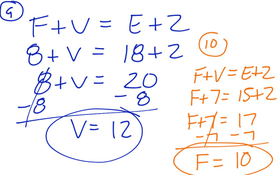 9
F+V = E+2
8+V = 18+2
8+V = 20
-8 -8
V = 12
10
F+V=E+2
F+7=15+2
F+7=17
-7 -7
F = 10